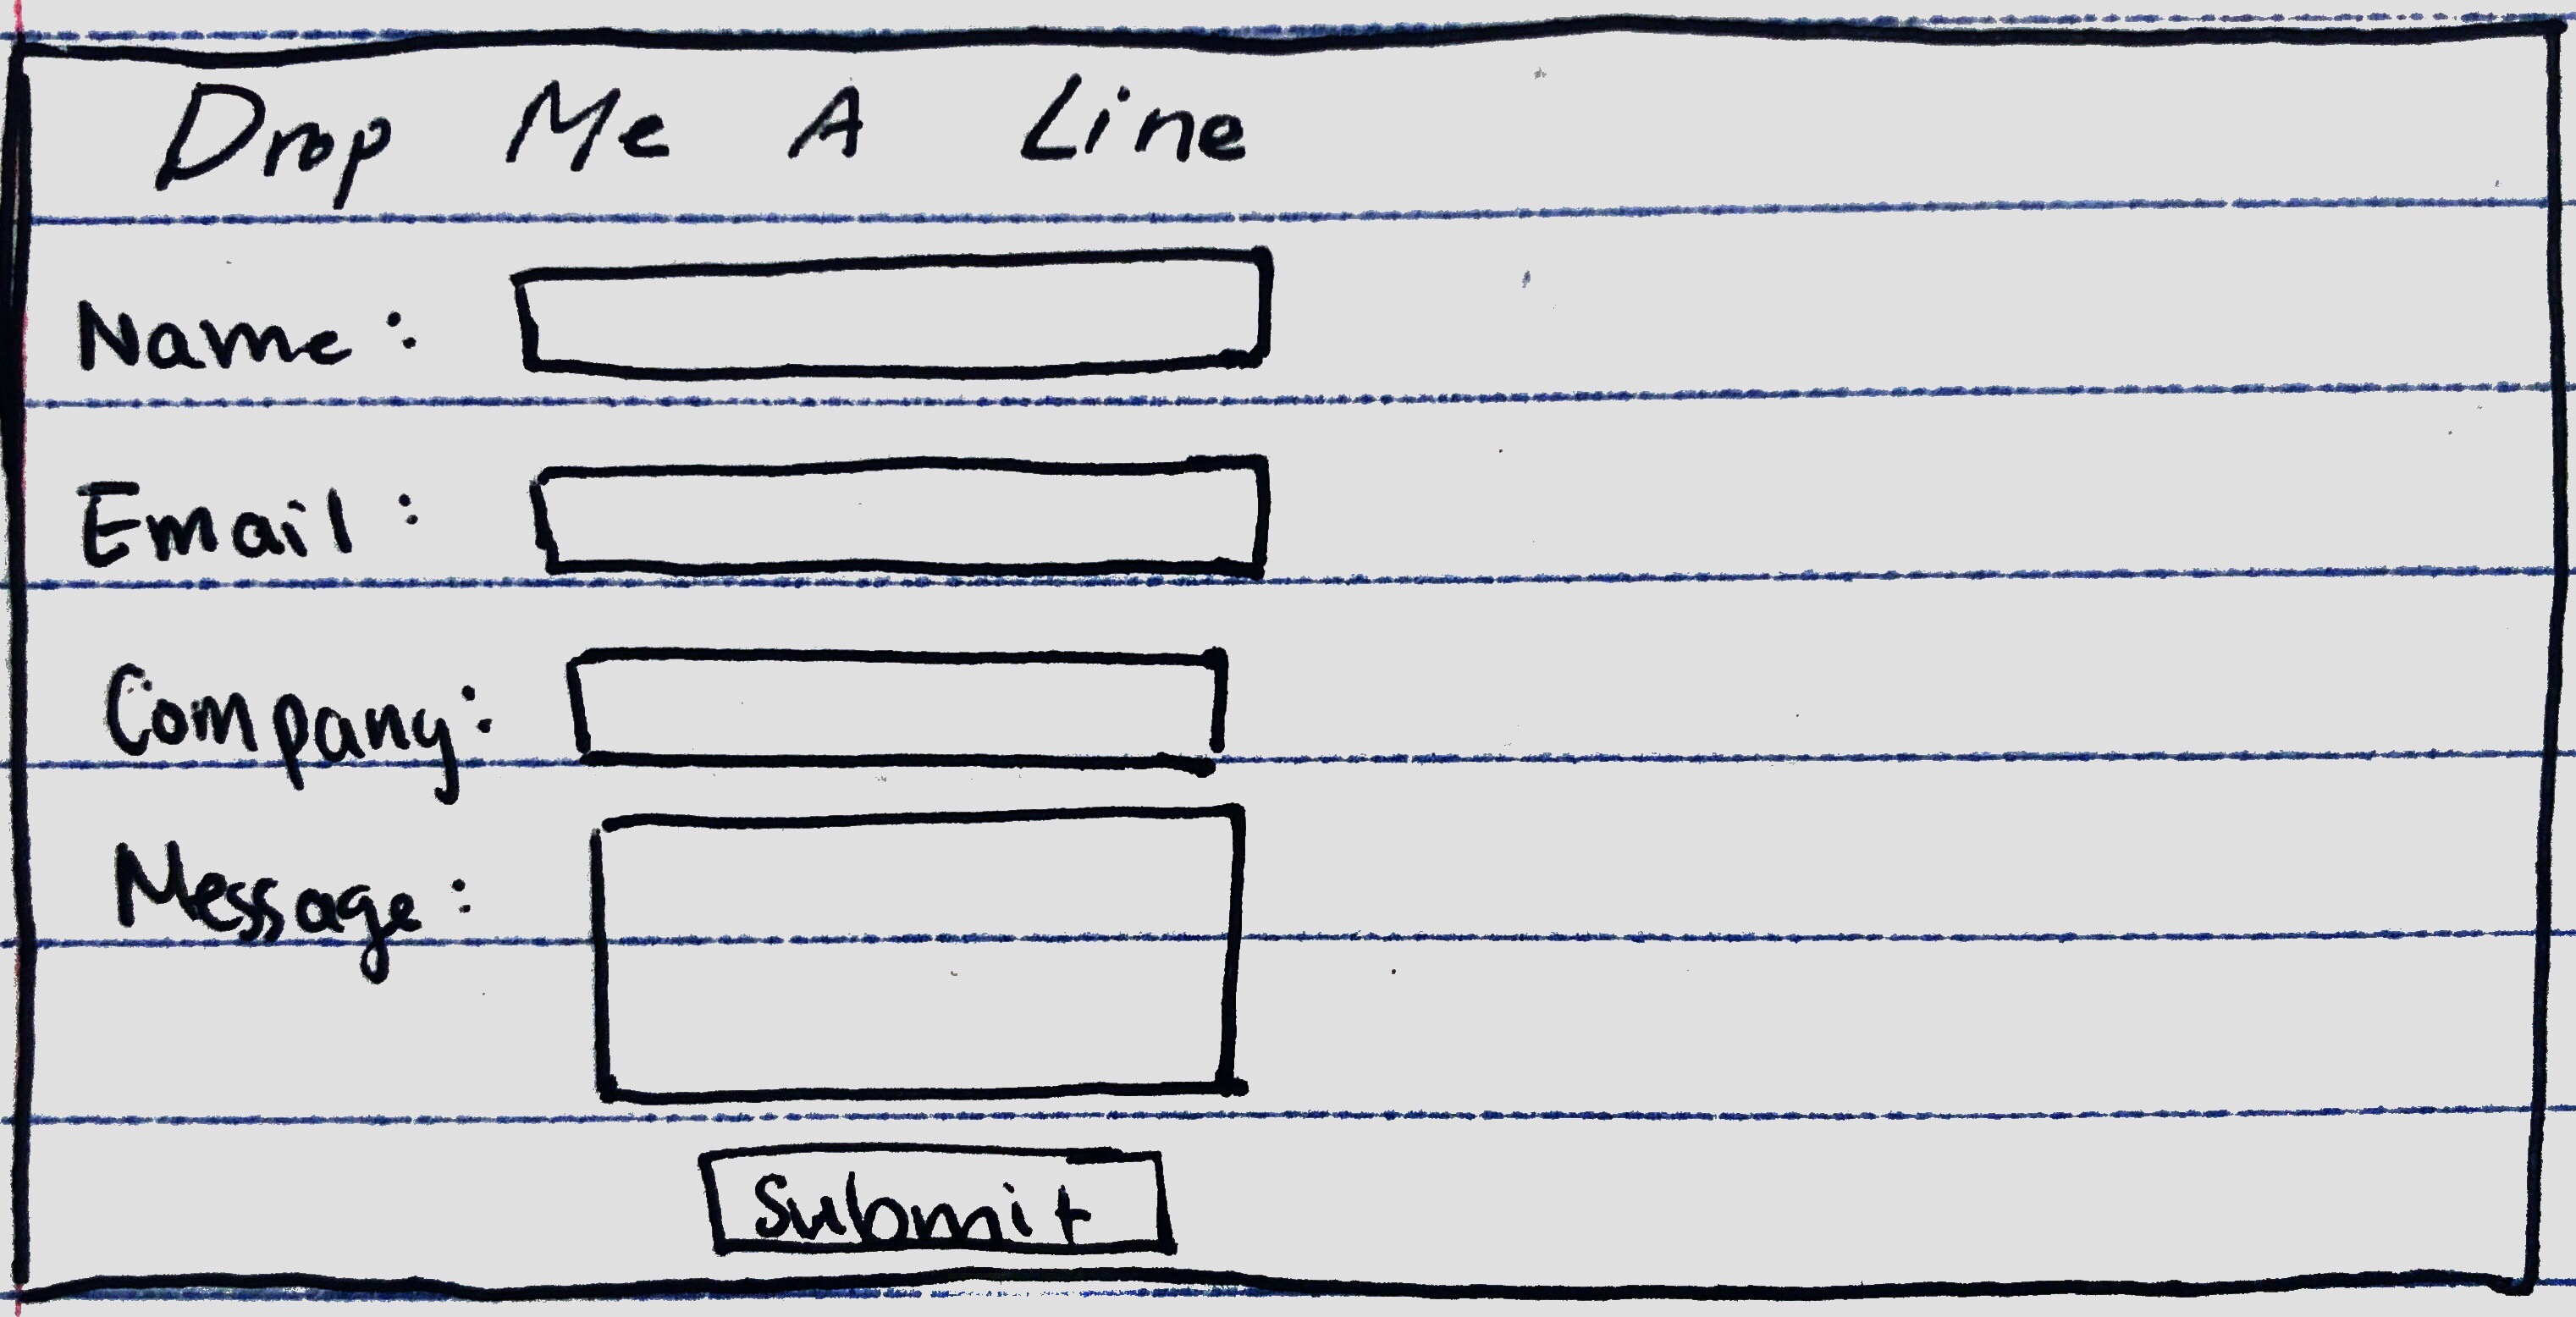 Drop Me A Line
Name:
Email:
Company:
Message:
Submit